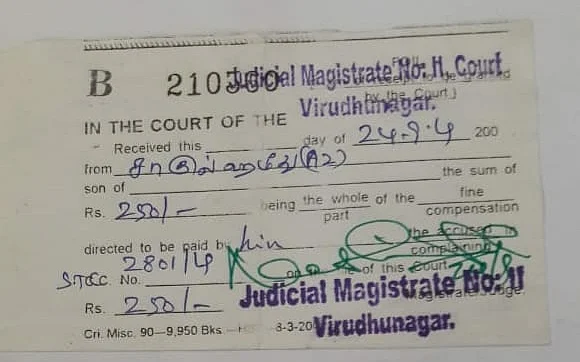 B 210560 Judicial Magistrate No: II, Court
Virudhunagar.
by the Court)
IN THE COURT OF THE
Received this day of 24.9.14 200
from சாகுல்ஹமீது (A2)
son of the sum of
Rs. 250/- being the whole of the fine
part compensation
directed to be paid by him the accused in
complaining
STCC. No. 2801/14 on of this Court
Rs. 250/- Judicial Magistrate No: II
Cri. Misc. 90—9,950 Bks 8-3-20 Virudhunagar.